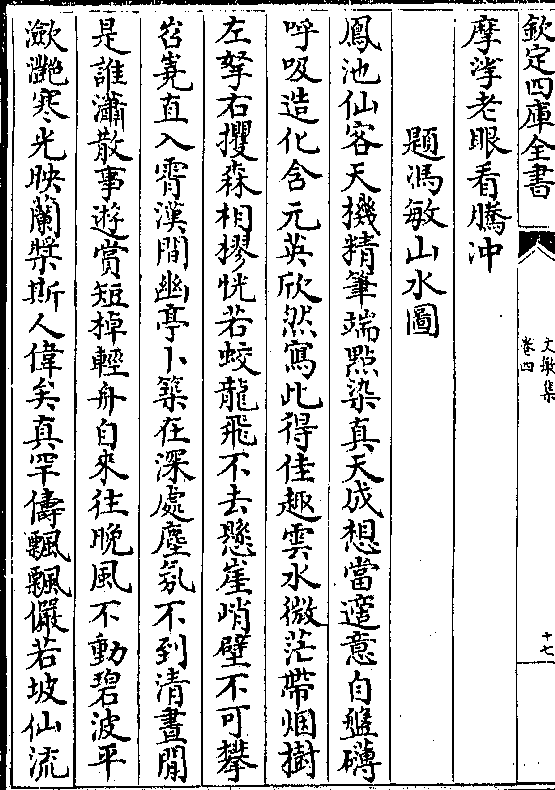 欽定四庫全書
文敏集
卷四
十七
摩挲老眼看騰沖
題馮敏山水圖
鳳池仙客天機精筆端㸃染真天成想當適意自盤礴
呼吸造化含元英欣然寫此得佳趣雲水微茫帶烟樹
左拏右攫森相摎恍若蛟龍飛不去懸崖峭壁不可攀
岧嶤直入霄漢間幽亭卜築在深處塵氛不到清晝閒
是誰瀟散事遊賞短棹輕舟自來往晚風不動碧波平
瀲灔寒光映蘭槳斯人偉矣真罕儔飄飄儼若坡仙流